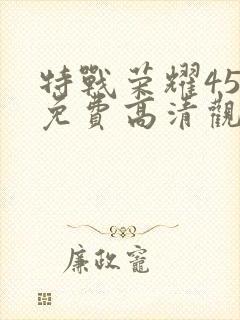 特戰荣耀45
免費高清觀
廉政寵